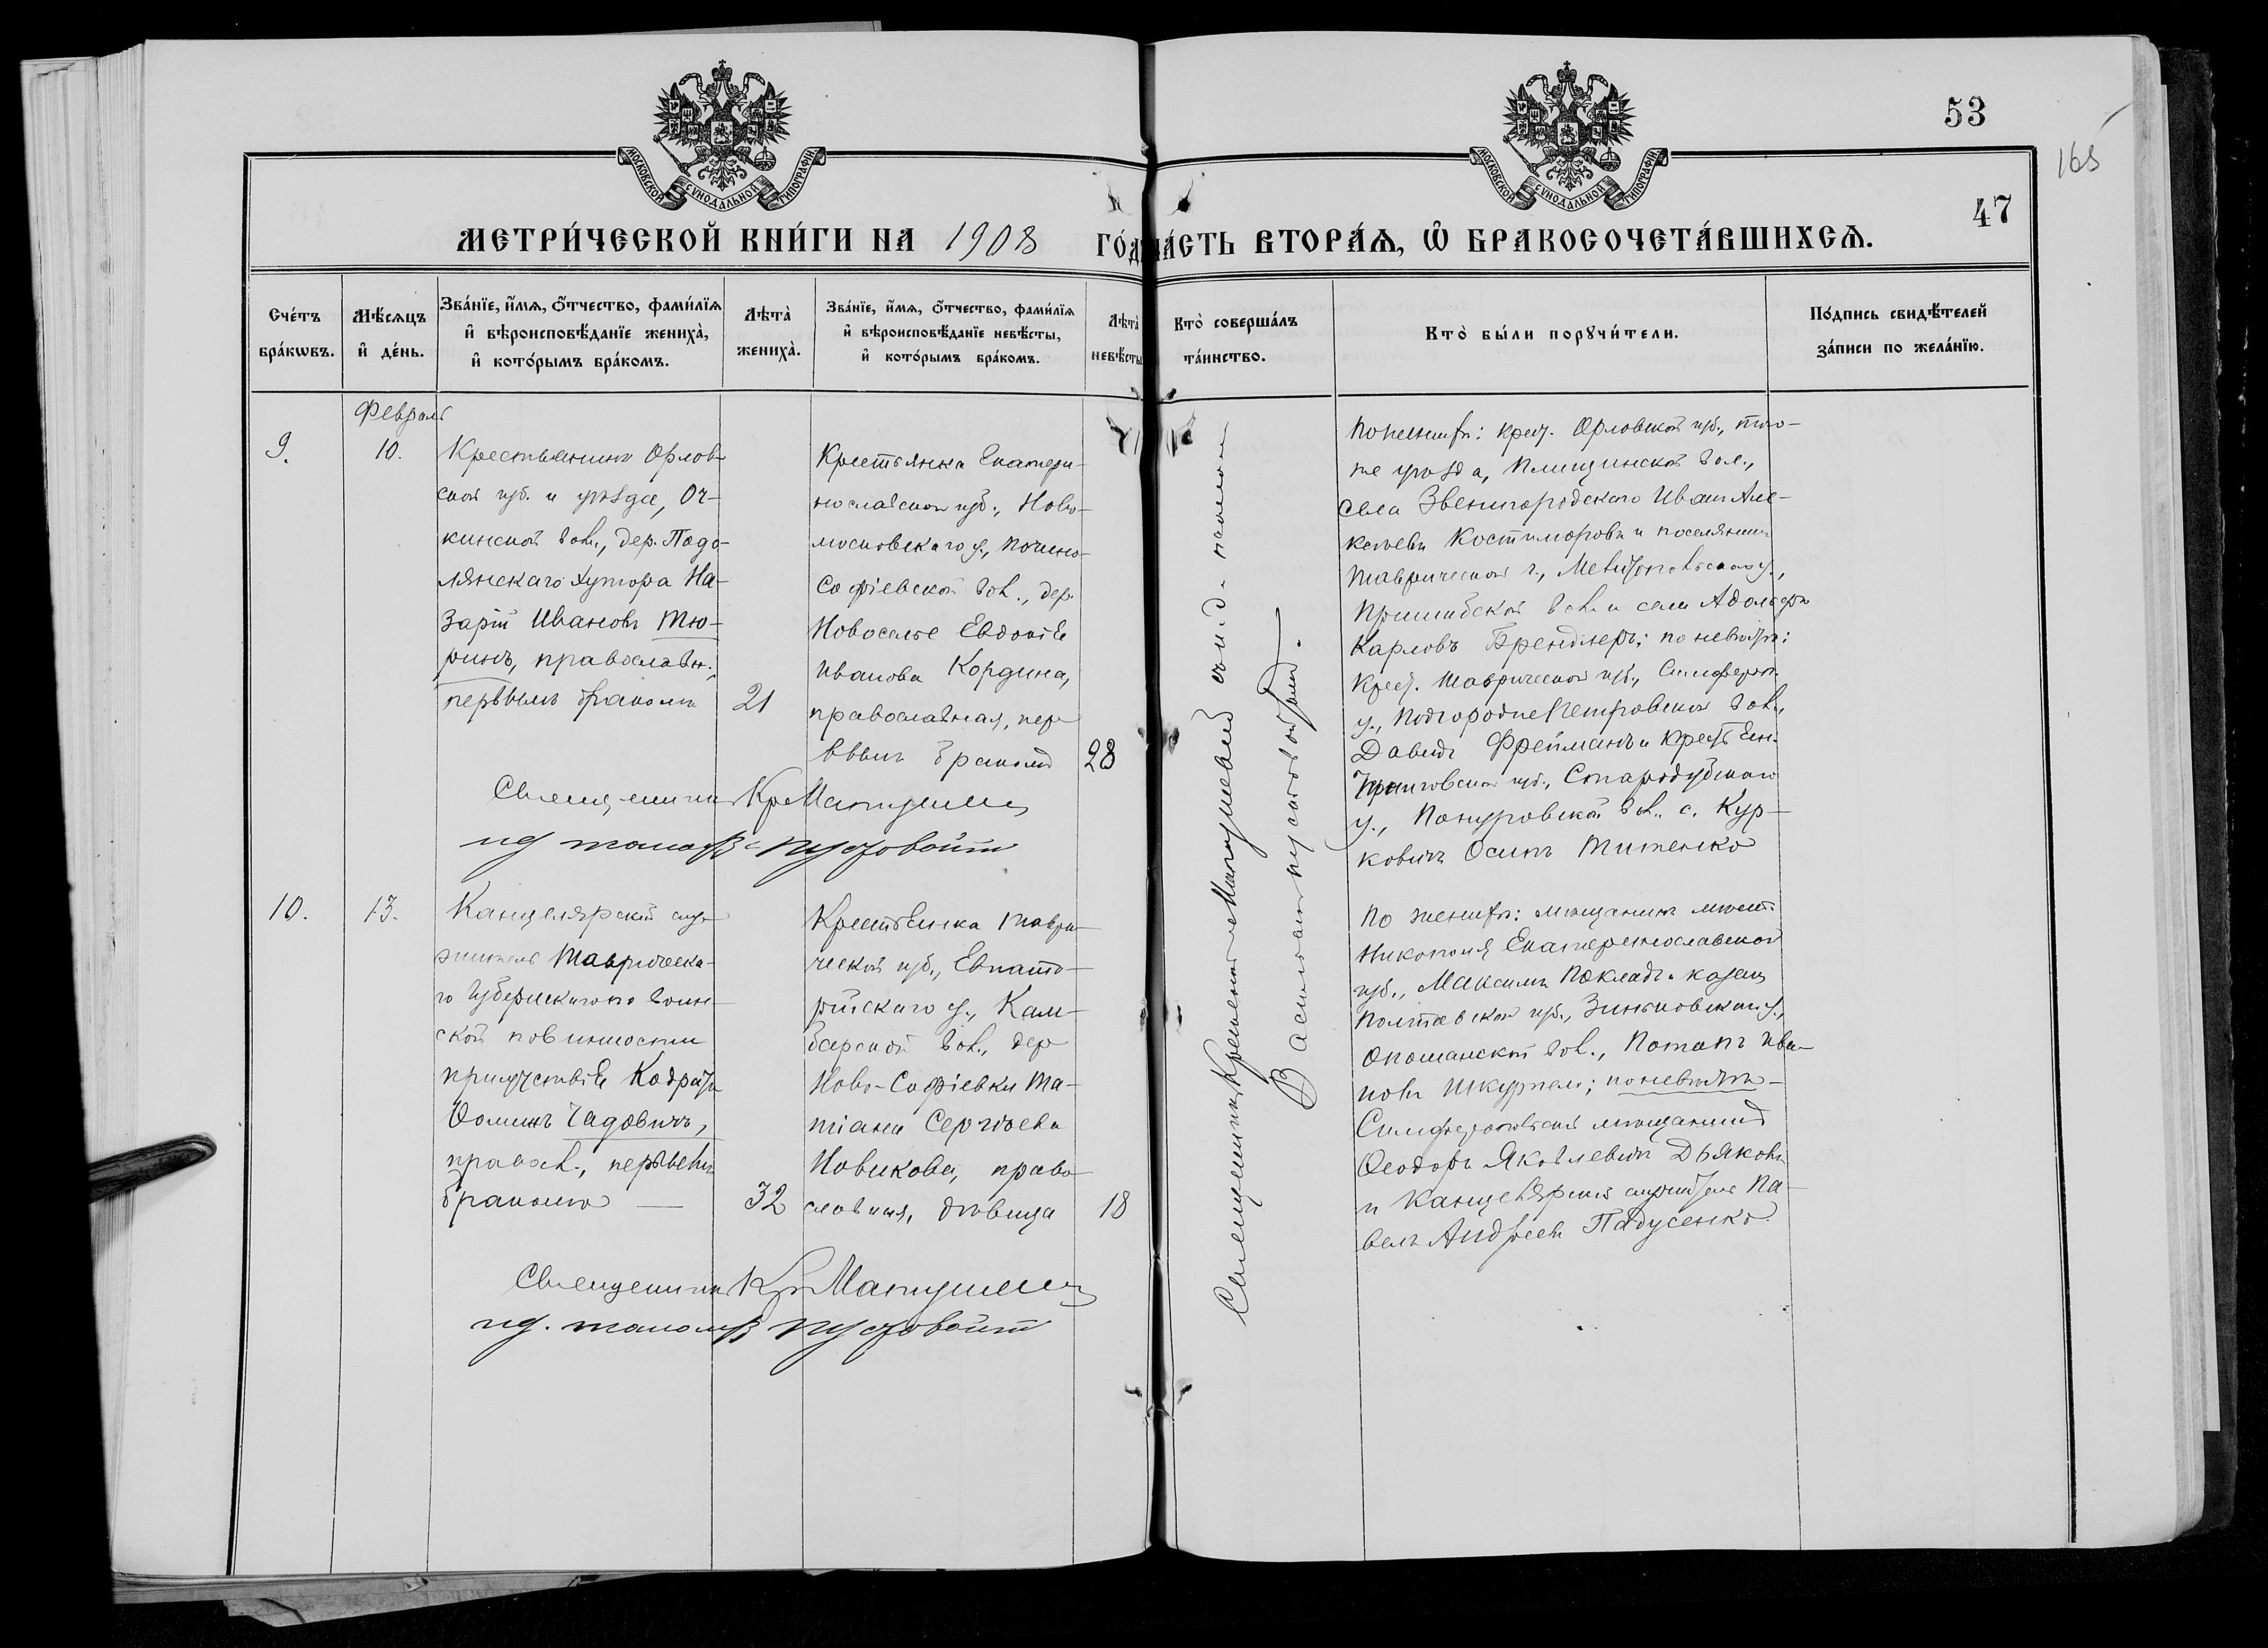 53
165
47
МОСКОВСКОЙ СѴНОДАЛЬНОЙ ТИПОГРАФІИ
МОСКОВСКОЙ СѴНОДАЛЬНОЙ ТИПОГРАФІИ
МЕТРИ́ЧЕСКОЙ КНИ́ГИ НА 1908 ГО́ДЪ
ЧА́СТЬ ВТОРА́Ѧ, Ѿ БРАКОСОЧЕТА́ВШИХСѦ.
Сче́тъ бра́кѡвъ.
Мѣ́сѧцъ и҆ де́нь.
Зва́нїе, и҆́мѧ, ѻ҆́тчество, фами́лїѧ
и҆ вѣроисповѣ́данїе жениха̀,
и҆ кото́рымъ бра́комъ.
Лѣта̀ жениха̀.
Зва́нїе, и҆́мѧ, ѻ҆́тчество, фами́лїѧ
и҆ вѣроисповѣ́данїе невѣ́сты,
и҆ кото́рымъ бра́комъ.
Лѣта̀ невѣ́сты
Кто̀ соверша́лъ та́инство.
Кто̀ бы́ли порꙋчи́тели.
По́дпись свидѣ́телей
за́писи по жела́нїю.
Февраль
9.
10.
Крестьянинъ Орлов-
ской губ. и уѣзда, Оч-
кинской вол., дер. Подо-
лянскаго хутора На-
зарій Ивановъ Тю-
ринъ, православн.,
первымъ бракомъ
21
Крестьянка Екатери-
нославской губ., Ново-
московскаго у.,
Софіевской вол., дер.
Новоселье Евдокія
Иванова Кордина,
православная, пер-
вымъ бракомъ
28
Священникъ Кр Матушев
ид псалом Пустовойт
Священникъ Матушевъ и и.д. псаломщ
Василій Пустовойтъ.
По женихѣ: крест. Орловской губ., того-
же уѣзда, Плещинской вол.,
села Звенигородскаго Иванъ Але-
ксѣевъ Костиморовъ и поселянинъ
Таврической г., Мелитопольскаго у.,
Пришибской вол. и села Адольфъ
Карловъ Брендлеръ; по невѣстѣ:
Крест. Таврической губ., Симфероп.
у., Подгородне Петровской вол.,
Давидъ Фрейманъ и крест.
Черниговской губ., Стародубскаго
у., Понуровской вол. с. Кур-
ковичъ Осипъ Титенко
10.
13.
Канцелярскій слу-
житель Таврическа-
го Губернскаго по воин-
ской повинности
присутствія Кодратъ
Ѳоминъ Чадовичъ,
правосл., первымъ
бракомъ —
32
Крестьянка Таври-
ческой губ., Евпато-
рійскаго у., Кам-
барской вол., дер.
Ново-Софіевки Та-
тіана Сергѣева
Новикова, право-
славная, дѣвица
18
Священникъ Кр Матушев
ид. псалом Пустовойт
По женихѣ: мѣщанинъ мѣст.
Никополя Екатеринославской
губ., Максимъ Покладъ и козакъ
Полтавской губ., Зиньковскаго у.,
Опошанской вол., Потапъ Ива-
новъ Шкурпелъ; по невѣстѣ —
Симферопольскій мѣщанинъ
Ѳеодоръ Яковлевичъ Дьяковъ
и Канцелярскій служитель Па-
велъ Андреевъ Падусенко.